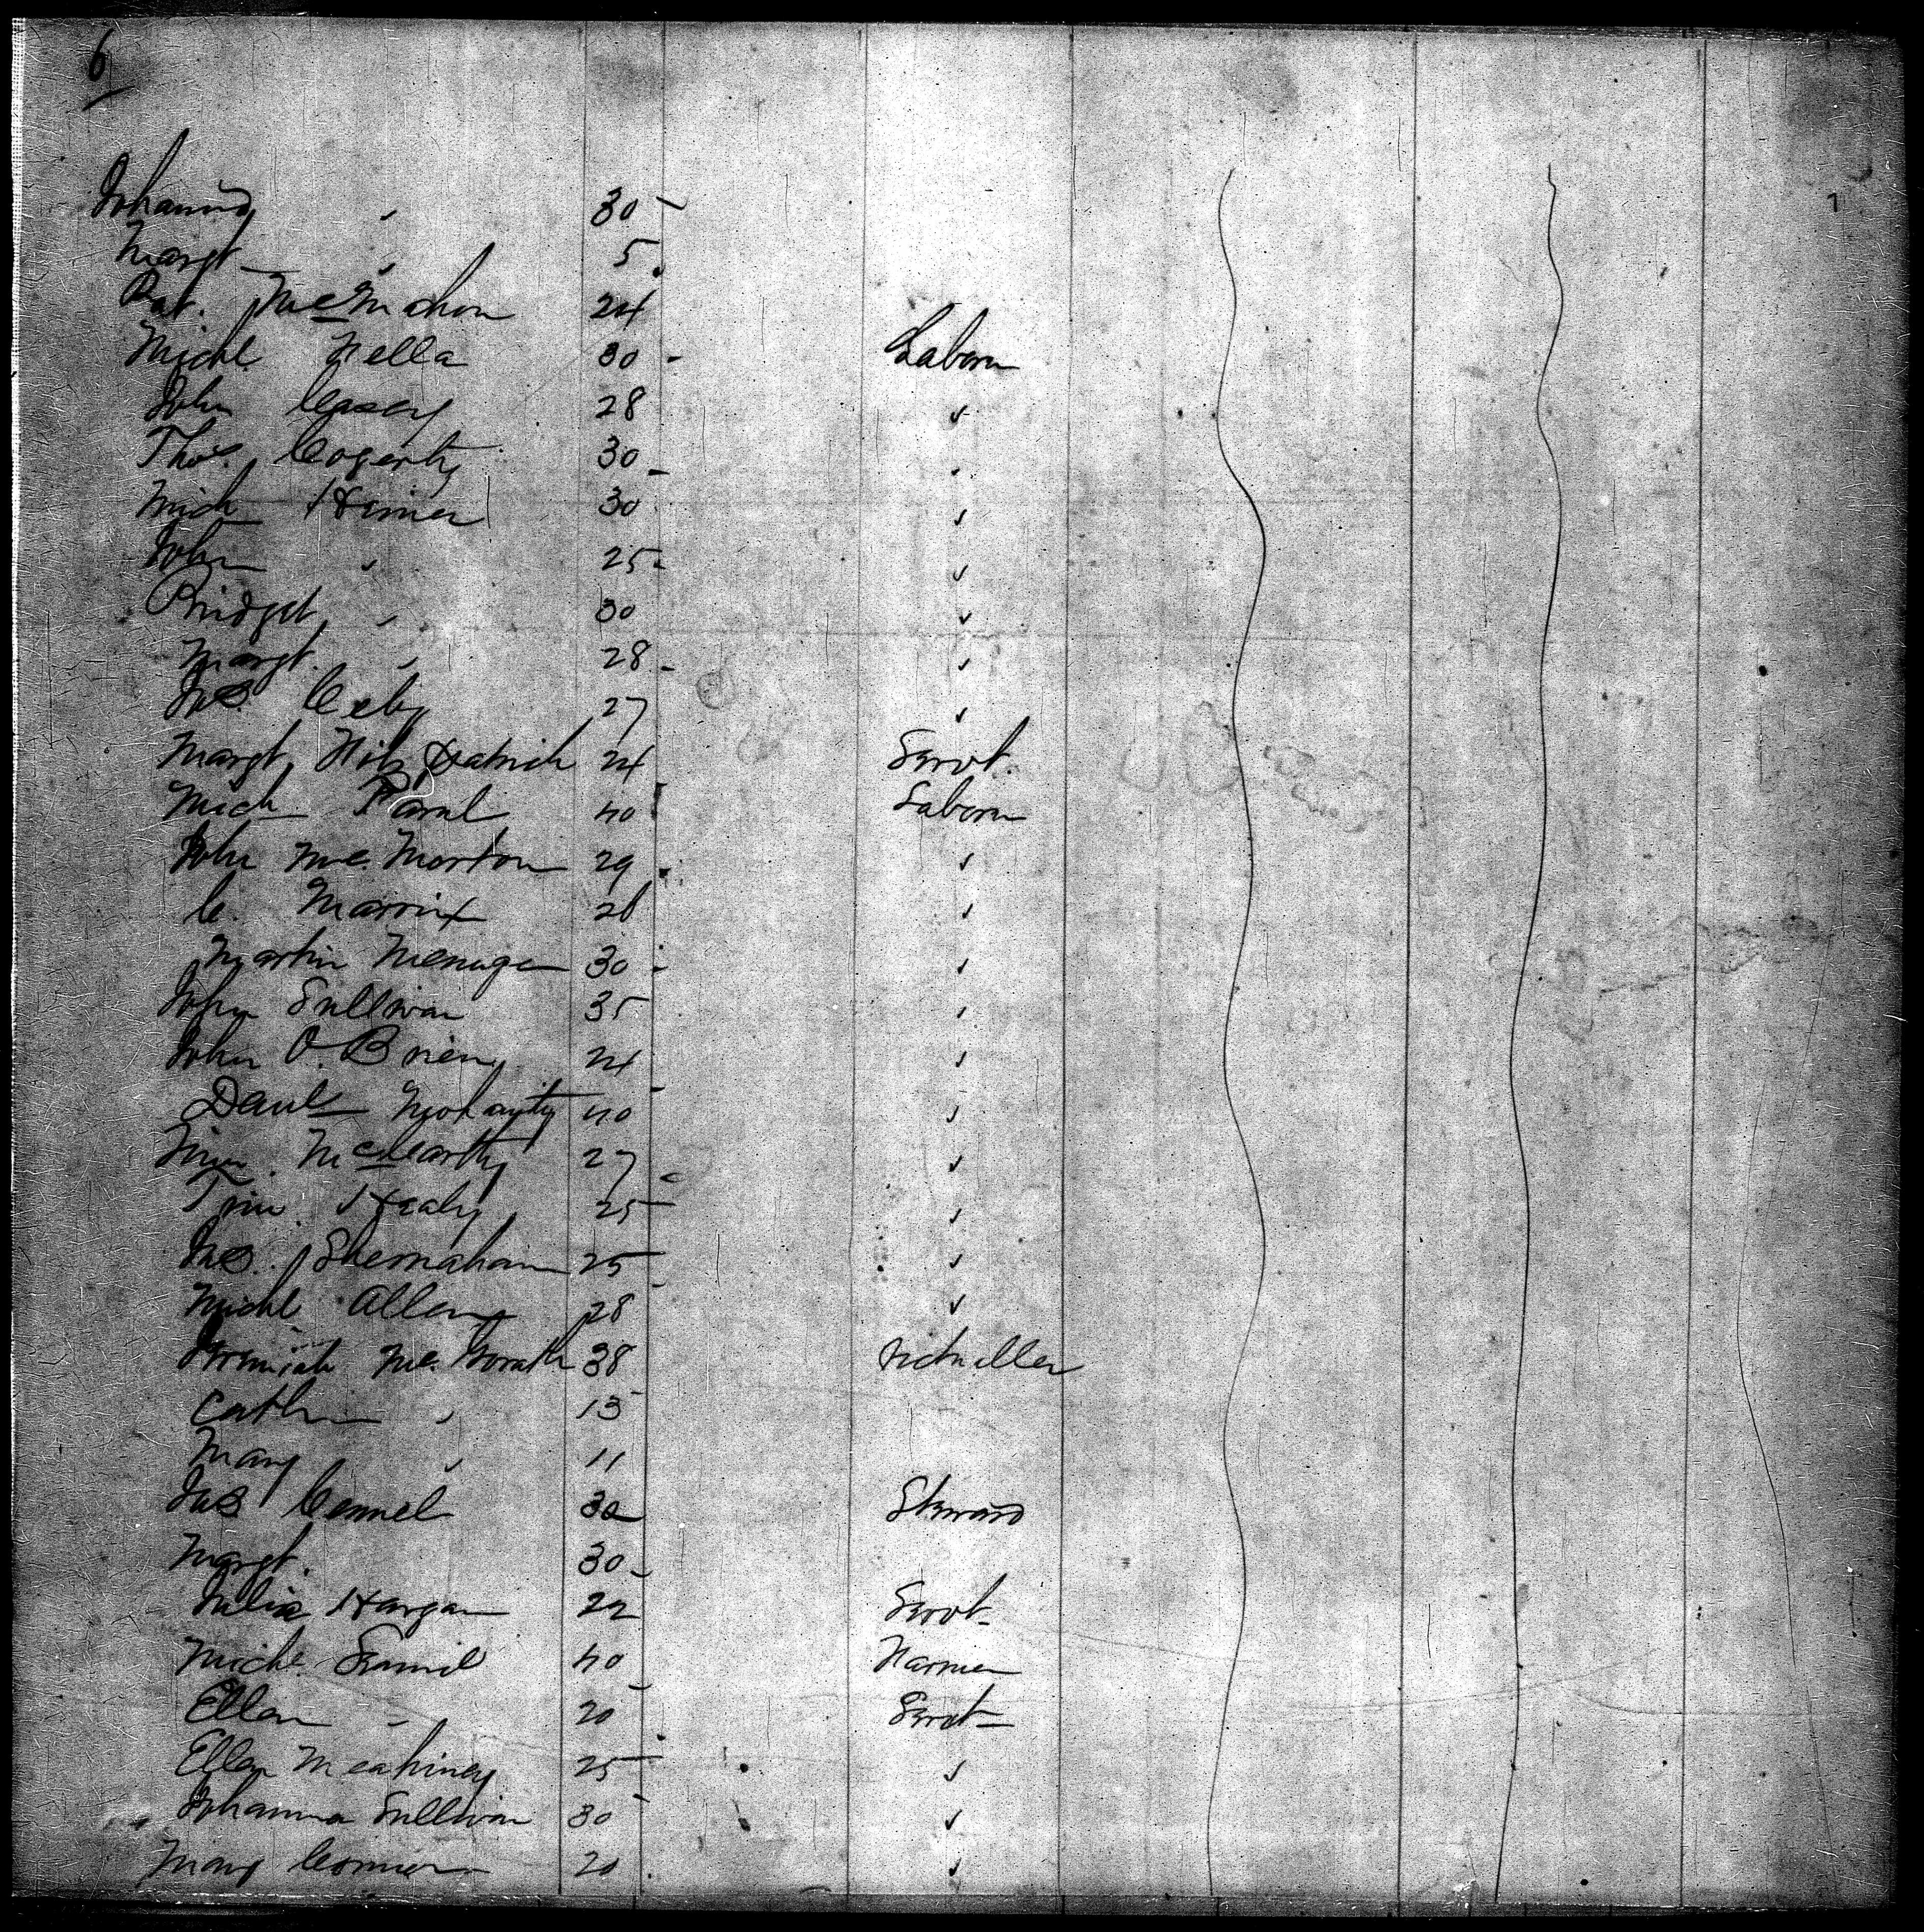 6
Johanna " 30
Margt " 5
Pat. McMahon 24
Michl Nella 30 Labour
John Casey 28 "
Thos. Cogerty 30 "
Mich 30 "
John " 25 "
Bridget " 30 "
Margt. " 28 "
Jas. 27 "
Margt Fitz Patrick 24 Servt.
Mich 40 Labour
John Mc. Morton 29 "
C. 26 "
Martin 30 "
John Sullivan 35 "
John O.Brien 24 "
Danl Moriarty 40 "
Tim. McCearthy 27 "
Tim. Healy 25 "
Jas. Shernahan 25 "
Michl Allen 28 "
Jeremiah Mc. Grath 38 Victualler
Cathn " 13
Mary " 11
Jas Connel 32 Steward
Margt. 30
Julia Hargan 22 Servt
Michl. 40 Farmer
Ellen " 20 Servt
Ellen Meahiney 25 "
Johanna Sullivan 30 "
Mary Connor 20 "